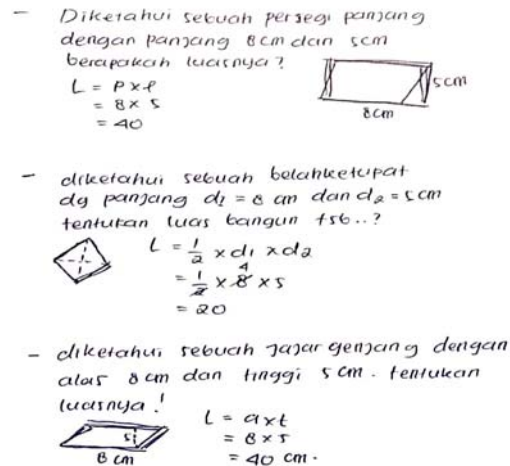 - Diketahui sebuah persegi panjang
dengan panjang 8 cm dan 5cm
berapakah luasnya?
L = p x l
= 8 x 5
= 40
5 cm
8 cm
- diketahui sebuah belahketupat
dg panjang d1 = 8 cm dan d2 = 5 cm
tentukan luas bangun tsb..?
L = 1/2 x d1 x d2
= 1/2 x 8 4 x 5
= 20
- diketahui sebuah jajar genjang dengan
alas 8 cm dan tinggi 5 cm. tentukan
luasnya!
L = a x t
= 8 x 5
= 40 cm.
5
8 cm